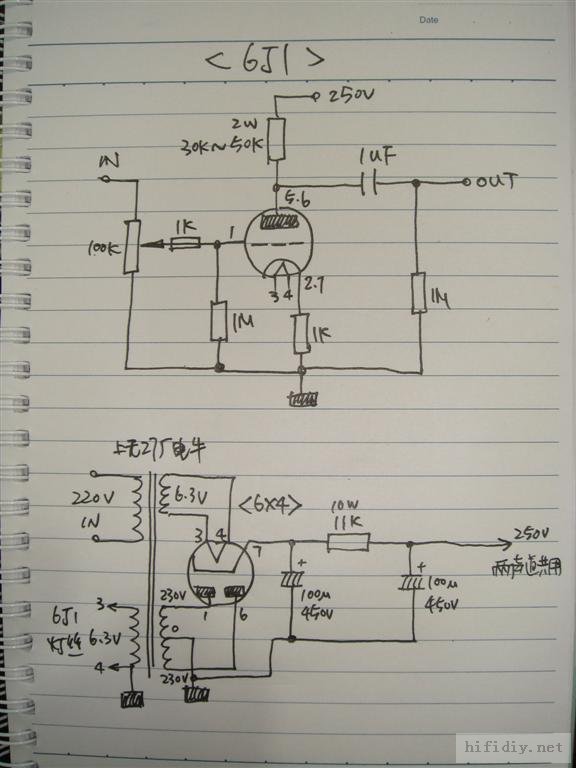 Date
<6J1>
250V
2W
30K~50K
1UF
IN
OUT
5.6
100K
1K
1
3 4
2.7
1M
1K
1M
上无27厂电牛
220V
IN
6.3V
<6X4>
10W
11K
250V
两声道共用
3 4 7
+
100μ
450V
+
100μ
450V
230V
1 6
6J1
灯丝 6.3V
3
4
0
230V
hifidiy.net